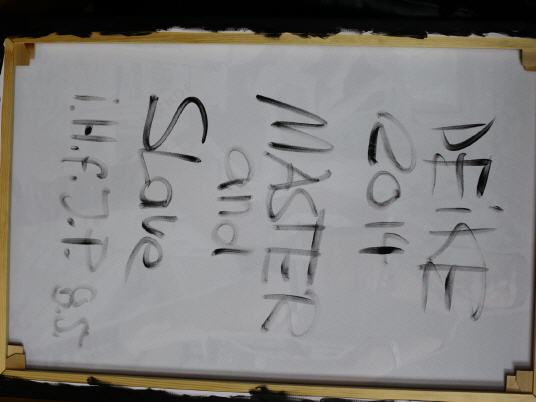 DEIKE
2014
MASTER
and
Slave
i.H.f.J.P. 8.5.